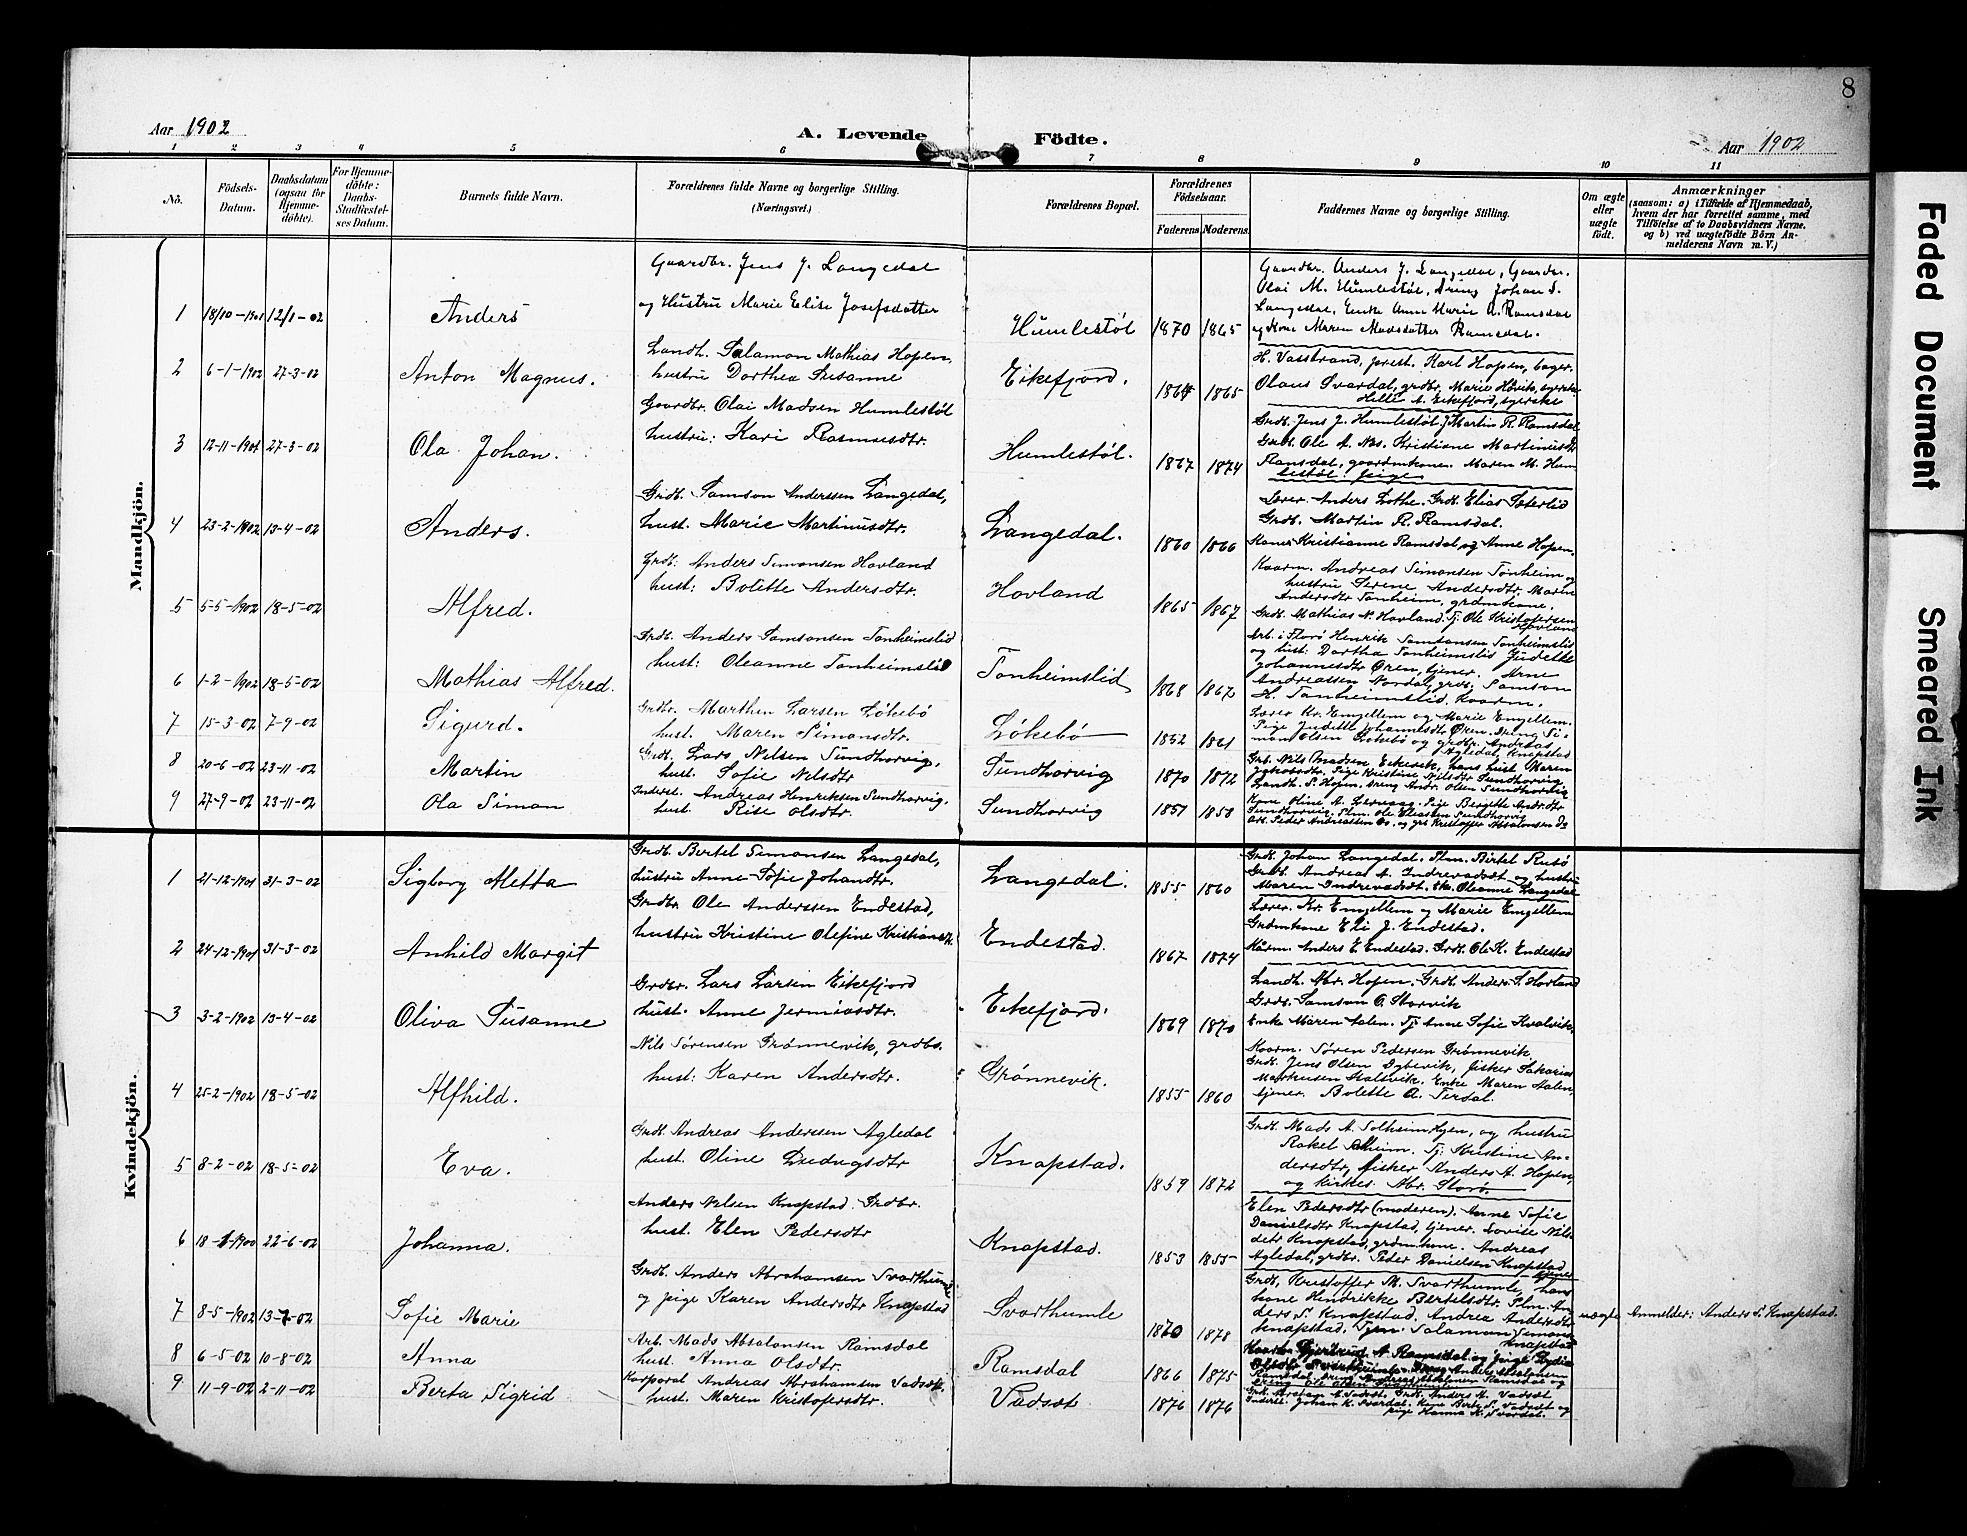 8
Aar 1902
A. Levende Födte.
Aar 1902
1 2 3 4 5 6 7 8 9 10 11
No.
Födsels-Datum.
Daabsdatum (ogsaa for Hjemme-döbte).
For Hjemme-döbte: Daabs-Stadfæstel-ses Datum.
Barnets fulde Navn.
Forældrenes fulde Navne og borgerlige Stilling. (Næringsvei.)
Forældrenes Bopæl.
Forældrenes Födselsaar.
Faderens Moderens
Faddernes Navne og borgerlige Stilling.
Om ægte eller uægte födt.
Anmærkninger
(saasom: a) i Tilfælde af Hjemmedaab, hvem der har forrettet samme, med Tilföielse af to Daabsvidners Navne. og b) ved uægtefödte Börn An-melderens Navn m. V.)
Mandkjön.
1 18/10-1901 12/1-02 Anders
Gaardbr. Jens J. Langedal
og Hustru Marie Elise Josefsdatter
Humlestöl 1870 1865
Gaardbr. Anders J. Langedal, Gaardbr.
Olai M. Humlestöl, Dreng Johan S.
Langedal, Enke Anne Marie A. Ramsdal
og Kone Maren Madsdatter Ramsdal.
2 6-1-1902 27-3-02 Anton Magnus.
Landh. Salamon Mathias Hopen,
hustru Dorthea Susanne
Eikefjord. 1864 1865
H. Vasstrand, prest. Karl Hopen, bager.
Olaus Svardal, grdbr. Marie Hövik, syerske
Helle A. Eikefjord, syerske
3 12-11-1901 27-3-02 Ola Johan.
Gaardbr. Olai Madsen Humlestöl
hustru: Kari Rasmusdtr.
Humlestöl. 1867 1874
Grdb. Jens J. Humlestöl. Martin R. Ramsdal
Grdb. Ole A. Nes. Kristiane Martinusdtr
Ramsdal, gaardmkone. Maren M. Hum
lestöl. pige
4 23-2-1902 13-4-02 Anders.
Grdb. Samson Anderssen Langedal,
hust. Marie Martinusdtr.
Langedal. 1860 1866
Lærer Anders Lothe. Grdb. Elias Sæterlid
Grdb. Martin R. Ramsdal.
Koner Kristianne Ramsdal og Anne Hopen.
5 5-5-1902 18-5-02 Alfred.
Grdb: Anders Simonsen Hovland
hust: Bolette Andersdtr.
Hovland 1865 1867
Kaarm. Andreas Simonsen Tonheim og
hustru Serene Andersdtr, Marie
Andersdtr Tonheim, grdmkone.
Grdb. Mathias N. Hovland. Tj. Ole Kristofersen
Hovland
6 1-2-1902 18-5-02 Mathias Alfred.
Grdb. Anders Samsonsen Tonheimslid
hust: Oleanne Tonheimslid
Tonheimslid 1868 1867
Arb. i Florö Henrik Samsonsen Tonheimslid
og hust: Dortha Tonheimslid Judette
Johannesdtr Ören, tjener. Arne
Andreassen Nordal, grdb. Samson
H. Tonheimslid. Kaarm.
7 15-3-02 7-9-02 Sigurd.
Grdbr. Marthin Larsen Lökebö
hust. Maren Simonsdtr.
Lökebö 1852 1861
Lærer Kr. Emgellem og Marie Emgellem.
Pige Judette Johannesdtr Ören. Dreng Si-
mon Olsen Lökebö og grdbr. Andreas
Agledal, Knapstad
8 20-6-02 23-11-02 Martin
Grdb. Lars Nilsen Sundhorvig,
hust. Sofie Nilsdtr
Sundhorvig 1870 1872
Grb. Nils Madsen Eikevik, hans hust Maren
Jakobsdtr. Pige Kristine Nilsdtr Sundhorvig
Landh. S. Hopen, dreng Andr. Olsen Sundhorvig
9 27-9-02 23-11-02 Ola Simon
Inderst. Andreas Henriksen Sundhorvig.
hust. Rise Olsdtr.
Sundhorvig 1851 1858
Kone Oline A. Lervaag. Pige Bergette Andr.dtr
Sundhorvig. Plm. Ole Eliassen Sundhorvig
Arb. Peder Andreassen Os. og grb Kristoffer Absalonsen Do
Kvindekjön.
1 21-12-1901 31-3-02 Sigborg Metta
Grdb. Bertel Simonsen Langedal,
hustru Anne Sofie Johandtr.
Langedal. 1855 1860
Grdb. Johan Langedal. Plm. Birtel Rusö
Grdb. Andreas A. Indrevadsdt og hustru
Maren Indrevadsdt. Ek. Oleanne Langedal
2 24-12-1901 31-3-02 Anhild Margit
Grdbr. Ole Anderssen Endestad,
hustru Kristine Olefine Kristiansd.
Endestad. 1867 1874
Lærer. Kr. Emgellem og Marie Emgellem
Grdmkone Eli J. Endestad.
Kårm. Anders E. Endestad. Grdb. Ole K. Endestad
3 3-2-1902 13-4-02 Oliva Susanne
Grdbr. Lars Larsen Eikefjord
hust. Anne Jermiasdtr.
Eikefjord. 1869 1870
Landh. Abr. Hopen. Grdb. Anders S. Hovland
Grdb. Samson O. Storvik
Enke Maren Aalen. Tj. Anne Sofie Kvalvik.
4 25-2-1902 18-5-02 Alfhild.
Nils Sörensen Grönnevik, grdbr.
hust: Karen Andersdtr.
Grönnevik. 1855 1860
Kaarm. Sören Pedersen Grönnevik
Grdb. Jens Olsen Dybevik, fisker Sakarias
Markusen Stalsvik. Enke Maren Aalen,
tjener Bolette A. Terdal.
5 8-2-02 18-5-02 Eva.
Grdb Andreas Anderssen Agledal
hust. Oline Ludvigsdtr
Knapstad. 1859 1872
Grdb. Mads A. Solheim Hyen, og hustru
Rakel Solheim. Tj. Kristine An-
dersdtr, fisker Anders A. Hopen,
og kirkes. Abr. Storö.
6 18-1-1900 22-6-02 Johanna.
Anders Nilsen Knapstad Grdbr.
hust. Elen Pedersdtr
Knapstad. 1853 1855
Elen Pedersdtr (moderen). Anne Sofie
Danielsdtr Knapstad, tjener. Lovise Nils
datr Knapstad, grdmkone. Andreas
Agledal, grdbr. Peder Danielsen Knapstad
tjener
7 8-5-1902 13-7-02 Sofie Marie
Grdb. Anders Abrahamsen Svarthumle
og pige Karen Andersdtr Knapstad
Svarthumle 1870 1878
Grdb. Kristoffer M. Svarthumle, hans
kone Hendrikke Bertelsdtr. Plm. An
ders S. Knapstad. Andrea Andersdtr
Knapstad, Tjen. Salamon Simons
Knapstad
uægte Anmelder: Anders S. Knapstad.
8 6-5-02 10-8-02 Anna
Arb. Mads Absalonsen Ramsdal
hust. Anna Olsdtr.
Ramsdal 1866 1875
A. Ramsdal og pige
9 11-9-02 2-11-02 Berta Sigrid
Korporal Andreas Abrahamsen Vadsöt.
hust. Maren Kristofersdtr.
Vadsöt 1876 1876
Grb. Abraham A. Vadsöt. Grdb. Anders A. Vadsöt
Inderst. Johan K. Svardal. Kone Berta S. Vadsöt og
pige Hanna K. Svardal.
Faded Document
Smeared Ink